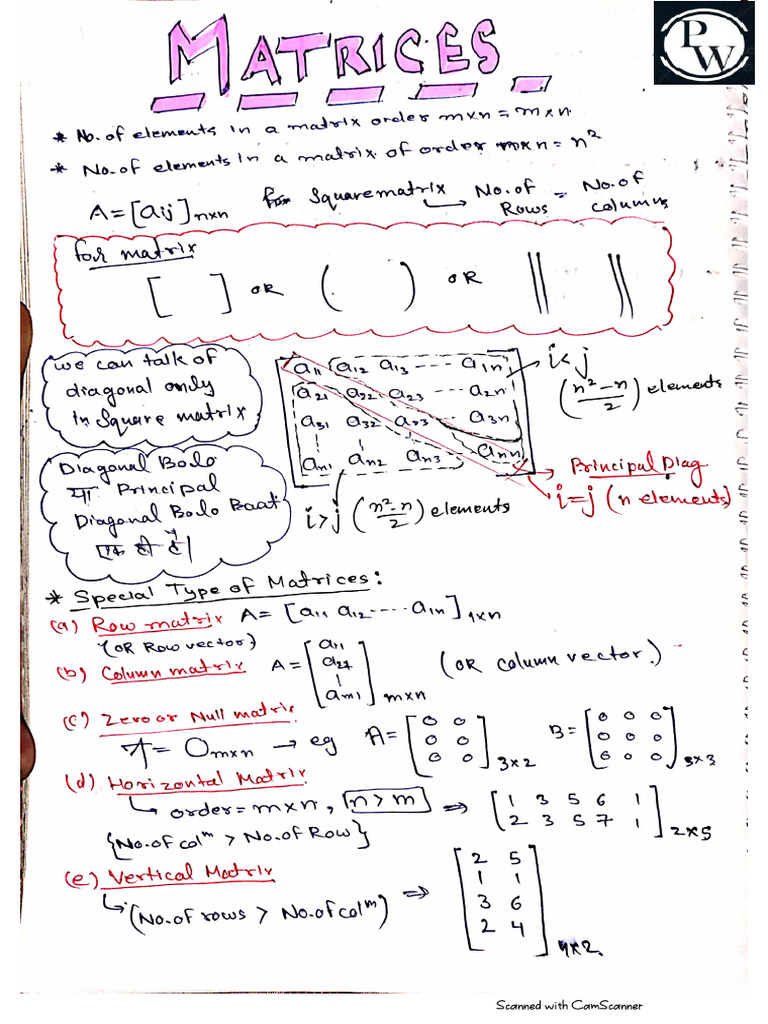 MATRICES
PW
* No. of elements in a matrix order m×n = m×n.
* No. of elements in a matrix of order n×n = n²
A = [aij]n×n for Square matrix → No. of Rows = No. of columns
for matrix
[ ] OR ( ) OR ‖ ‖
we can talk of
diagonal only
in Square matrix
a11 a12 a13 ---- a1n
a21 a22 a23 --- a2n
a31 a32 a33 --- a3n
an1 an2 an3 ann
i<j
(n²-n/2) elements
→ Principal Diag
i=j (n elements)
i>j (n²-n/2) elements
Diagonal Bolo
या Principal
Diagonal Bolo Baat
एक ही है।
* Special Type of Matrices:
(a) Row matrix A = [a11 a12 ---- a1n]1×n
(OR Row vector)
(b) Column matrix A = [a11 a21 | am1]m×n (OR column vector.)
(c) Zero or Null matrix
A = Om×n → eg A = [0 0 0 0 0 0]3×2 B = [0 0 0 0 0 0 0 0 0]3×3
(d) Horizontal Matrix
↳ order = m×n, n>m ⇒ [1 3 5 6 1 2 3 5 7 1]2×5
{No. of colm > No. of Row}
(e) Vertical Matrix
↳ (No. of rows > No. of colm) ⇒ [2 5 1 1 3 6 2 4]4×2.
Scanned with CamScanner